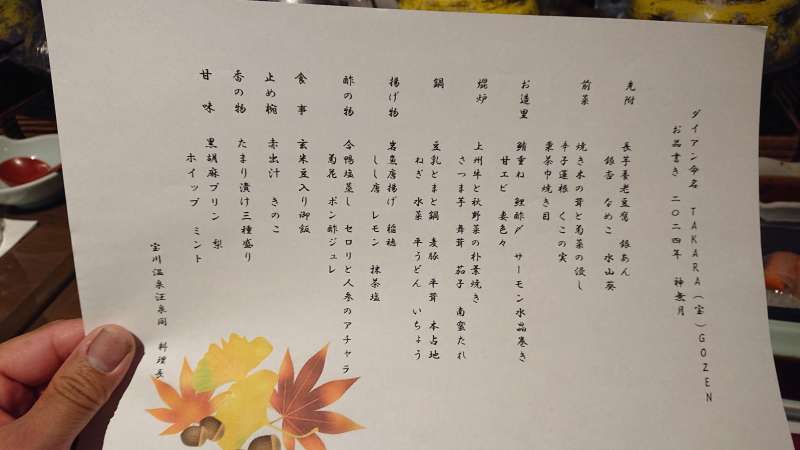 ダイアン命名 TAKARA(宝)GOZEN
お品書き 二〇二四年 神無月
先附 長芋養老豆腐 銀あん
銀杏 なめこ 水山葵
前菜 焼き木の茸と菊菜の浸し
辛子蓮根 くこの実
栗茶巾焼き目
お造里 鯛重ね 鯉酢〆 サーモン水晶巻き
甘エビ 妻色々
焜炉 上州牛と秋野菜の朴葉焼き
さつま芋 舞茸 茄子 南蛮たれ
鍋 豆乳とまと鍋 麦豚 平茸 本占地
ねぎ 水菜 平うどん いちょう
揚げ物 岩魚唐揚げ 稲穂
しし唐 レモン 抹茶塩
酢の物 合鴨塩蒸し セロリと人参のアチャラ
菊花 ポン酢ジュレ
食事 玄米豆入り御飯
止め椀 赤出汁 きのこ
香の物 たまり漬け三種盛り
甘味 黒胡麻プリン 梨
ホイップ ミント
宝川温泉汪泉閣 料理長